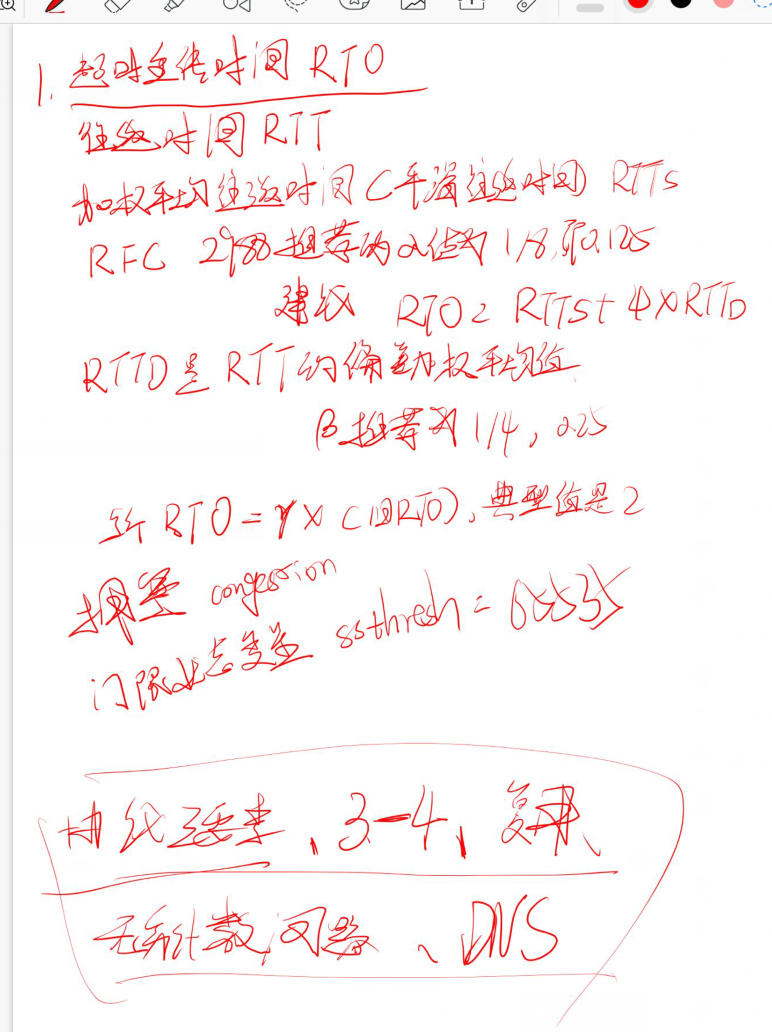 1. 超时重传时间 RTO
往返时间 RTT
加权平均往返时间(平滑往返时间) RTTs
RFC 2988推荐的α值为 1/8,即0.125
建议 RTO = RTTs + 4 × RTTD
RTTD是 RTT的偏差加权平均值
β推荐为 1/4, 0.25
新 RTO = γ × (旧RTO), 典型值是 2
拥塞 congestion
门限状态变量 ssthresh = 65535
协议要素、3-4、
无穷计数问题、DNS